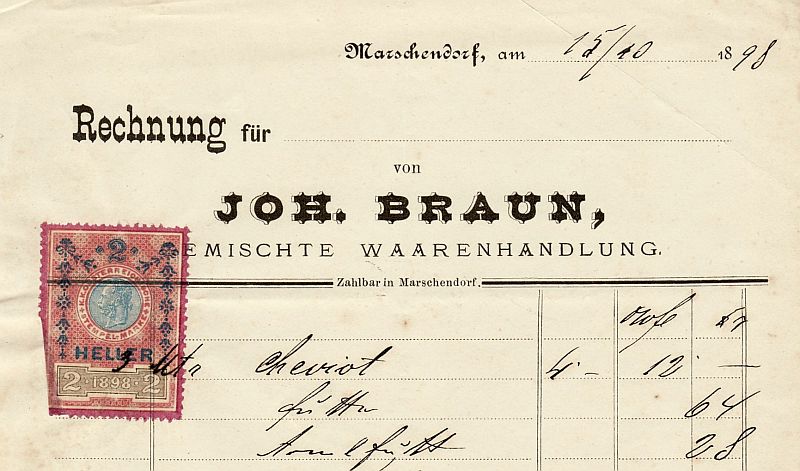 Marschendorf, am 15/10 1898
Rechnung für
von
JOH. BRAUN,
EMISCHTE WAARENHANDLUNG.
Zahlbar in Marschendorf.
2
K.K. OESTERREICHISCHE STEMPEL-MARKE
HELLER
2 · 1898 · 2
kr
3 Mtr Cheviot 4.– 12 –
Futter 64
Armelfutt 28